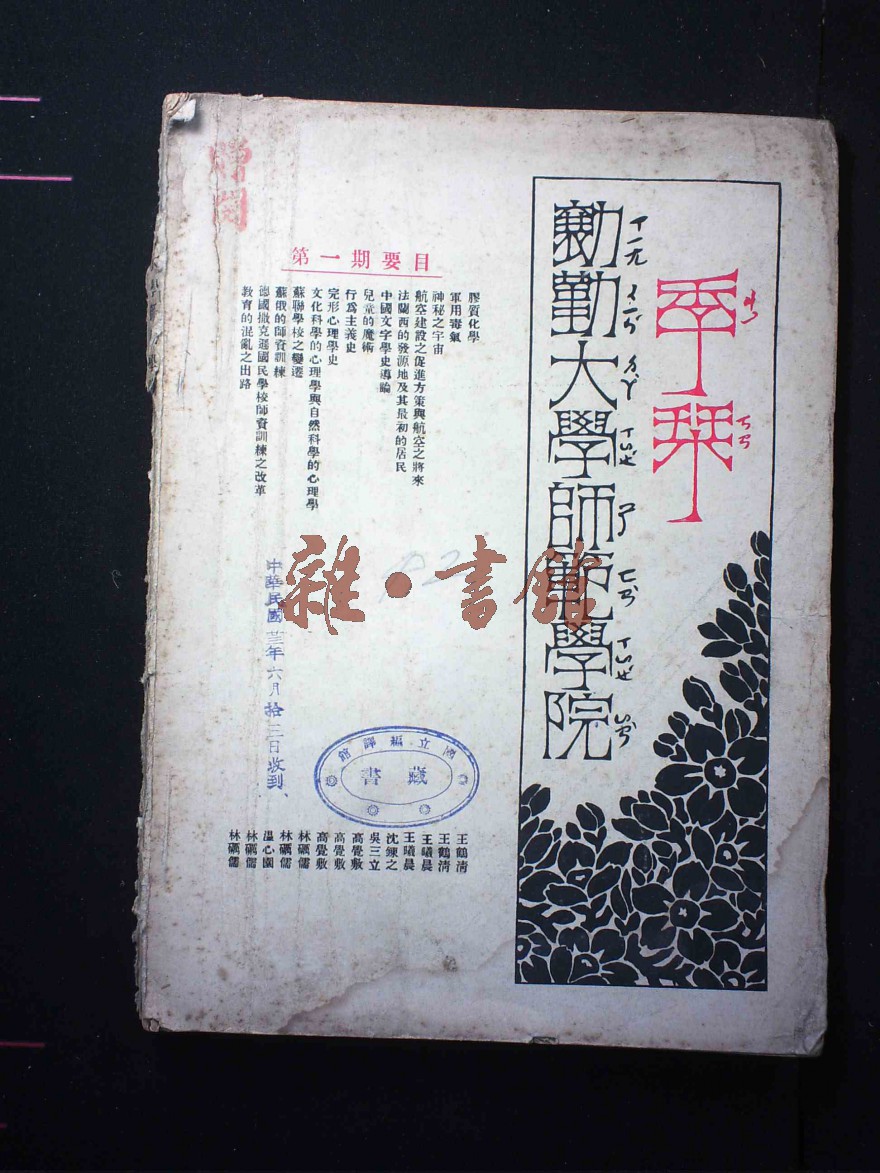 季栞
勷勤大學師範學院
第一期要目
膠質化學
軍用毒氣
神秘之宇宙
航空建設之促進方策與航空之將來
法蘭西的發源地及其最初的居民
中國文字學史導論
兒童的魔術
行爲主義史
完形心理學史
文化科學的心理學與自然科學的心理學
蘇聯學校之變遷
蘇俄的師資訓練
德國撒克遜國民學校師資訓練之改革
教育的混亂之出路
王鶴清
王鶴清
王曦晨
王曦晨
沈鍊之
吳三立
高覺敷
高覺敷
高覺敷
林礪儒
林礪儒
溫心園
林礪儒
林礪儒
中華民國廿三年六月拾三日收到
國立編譯館
藏書
雜·書館